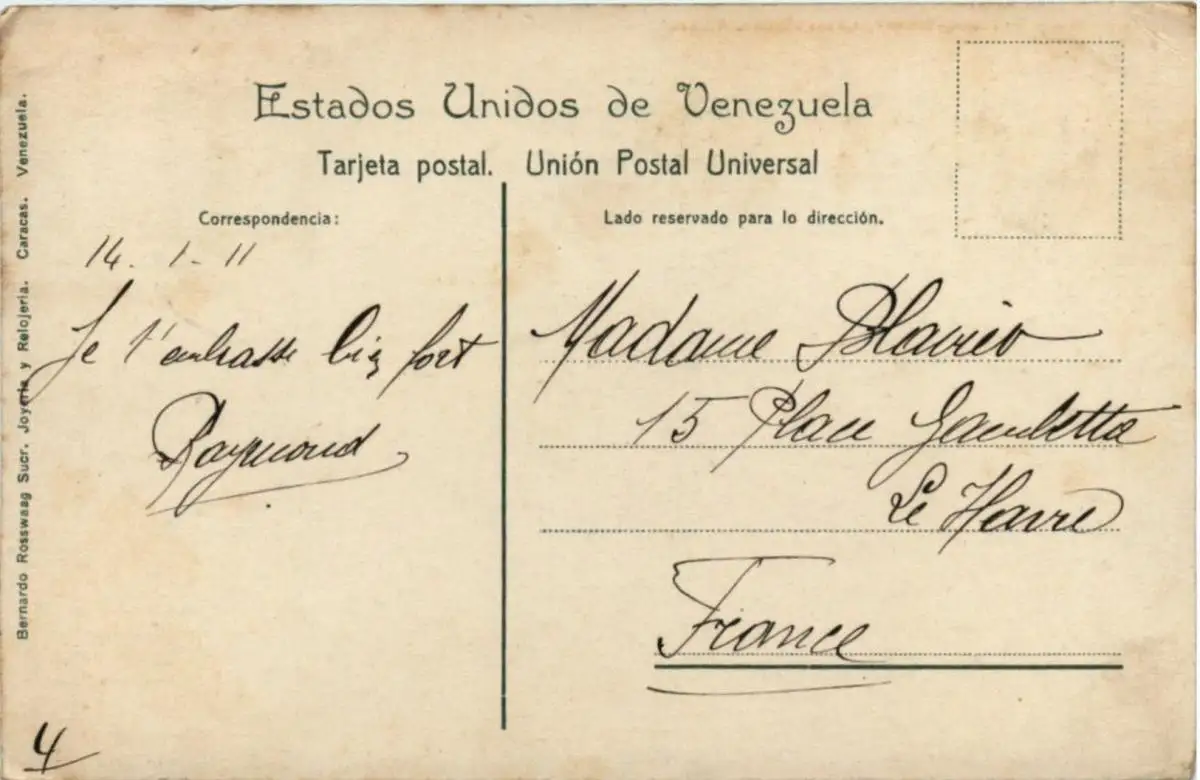 Estados Unidos de Venezuela
Tarjeta postal. Unión Postal Universal
Correspondencia:
Lado reservado para lo dirección.
14. 1 - 11
Je t'embrasse bien fort
Raymond
Madame
15 Place Gambetta
Le Havre
France
4
Bernardo Rosswaag Sucr. Joyería y Relojería. Caracas. Venezuela.